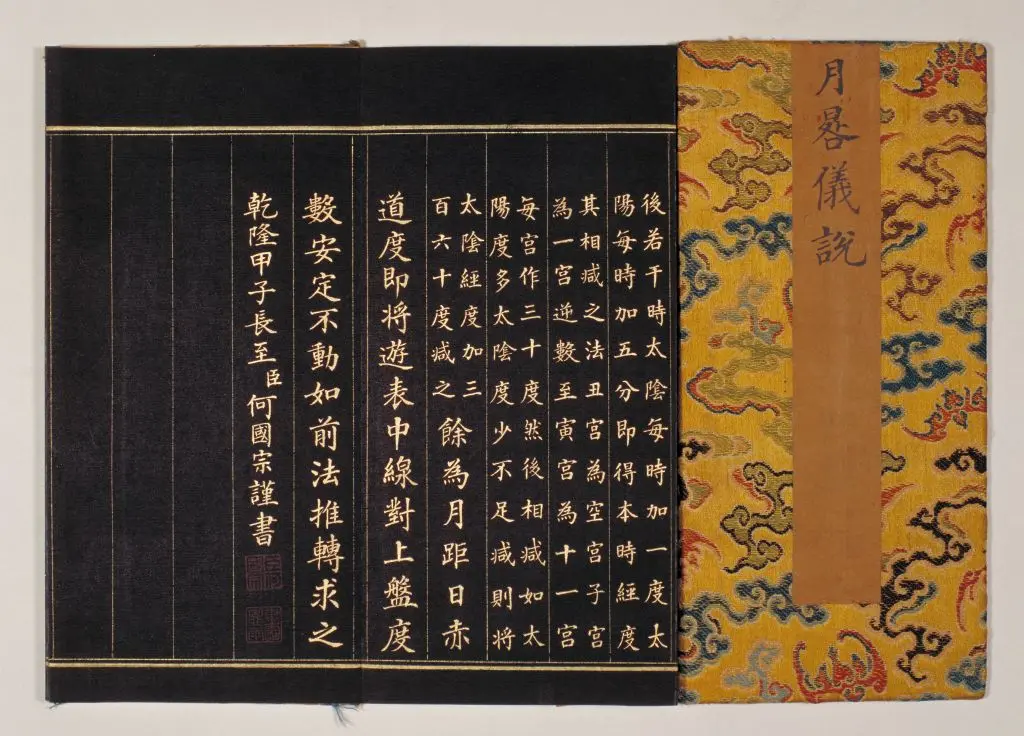 月晷儀說
後若干時太陰每時加一度太
陽每時加五分即得本時經度
其相减之法丑宮為空宮子宮
為一宮逆數至寅宮為十一宮
每宮作三十度然後相减如太
陽度多太陰度少不足减則將
太陰經度加三
百六十度减之
餘為月距日赤
道度即將遊表中線對上盤度
數安定不動如前法推轉求之
乾隆甲子長至臣何國宗謹書